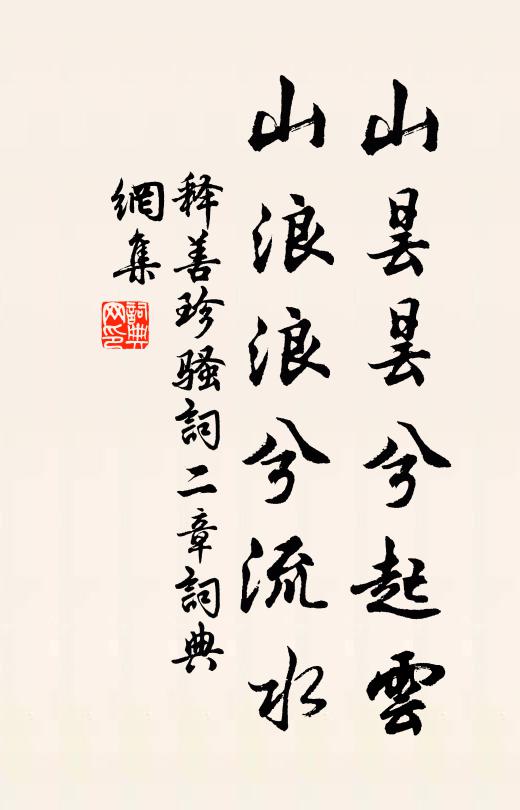 山昙昙兮起雲
山浪浪兮流水
释善珍騷詞二章詞典
網集
詞典
网印